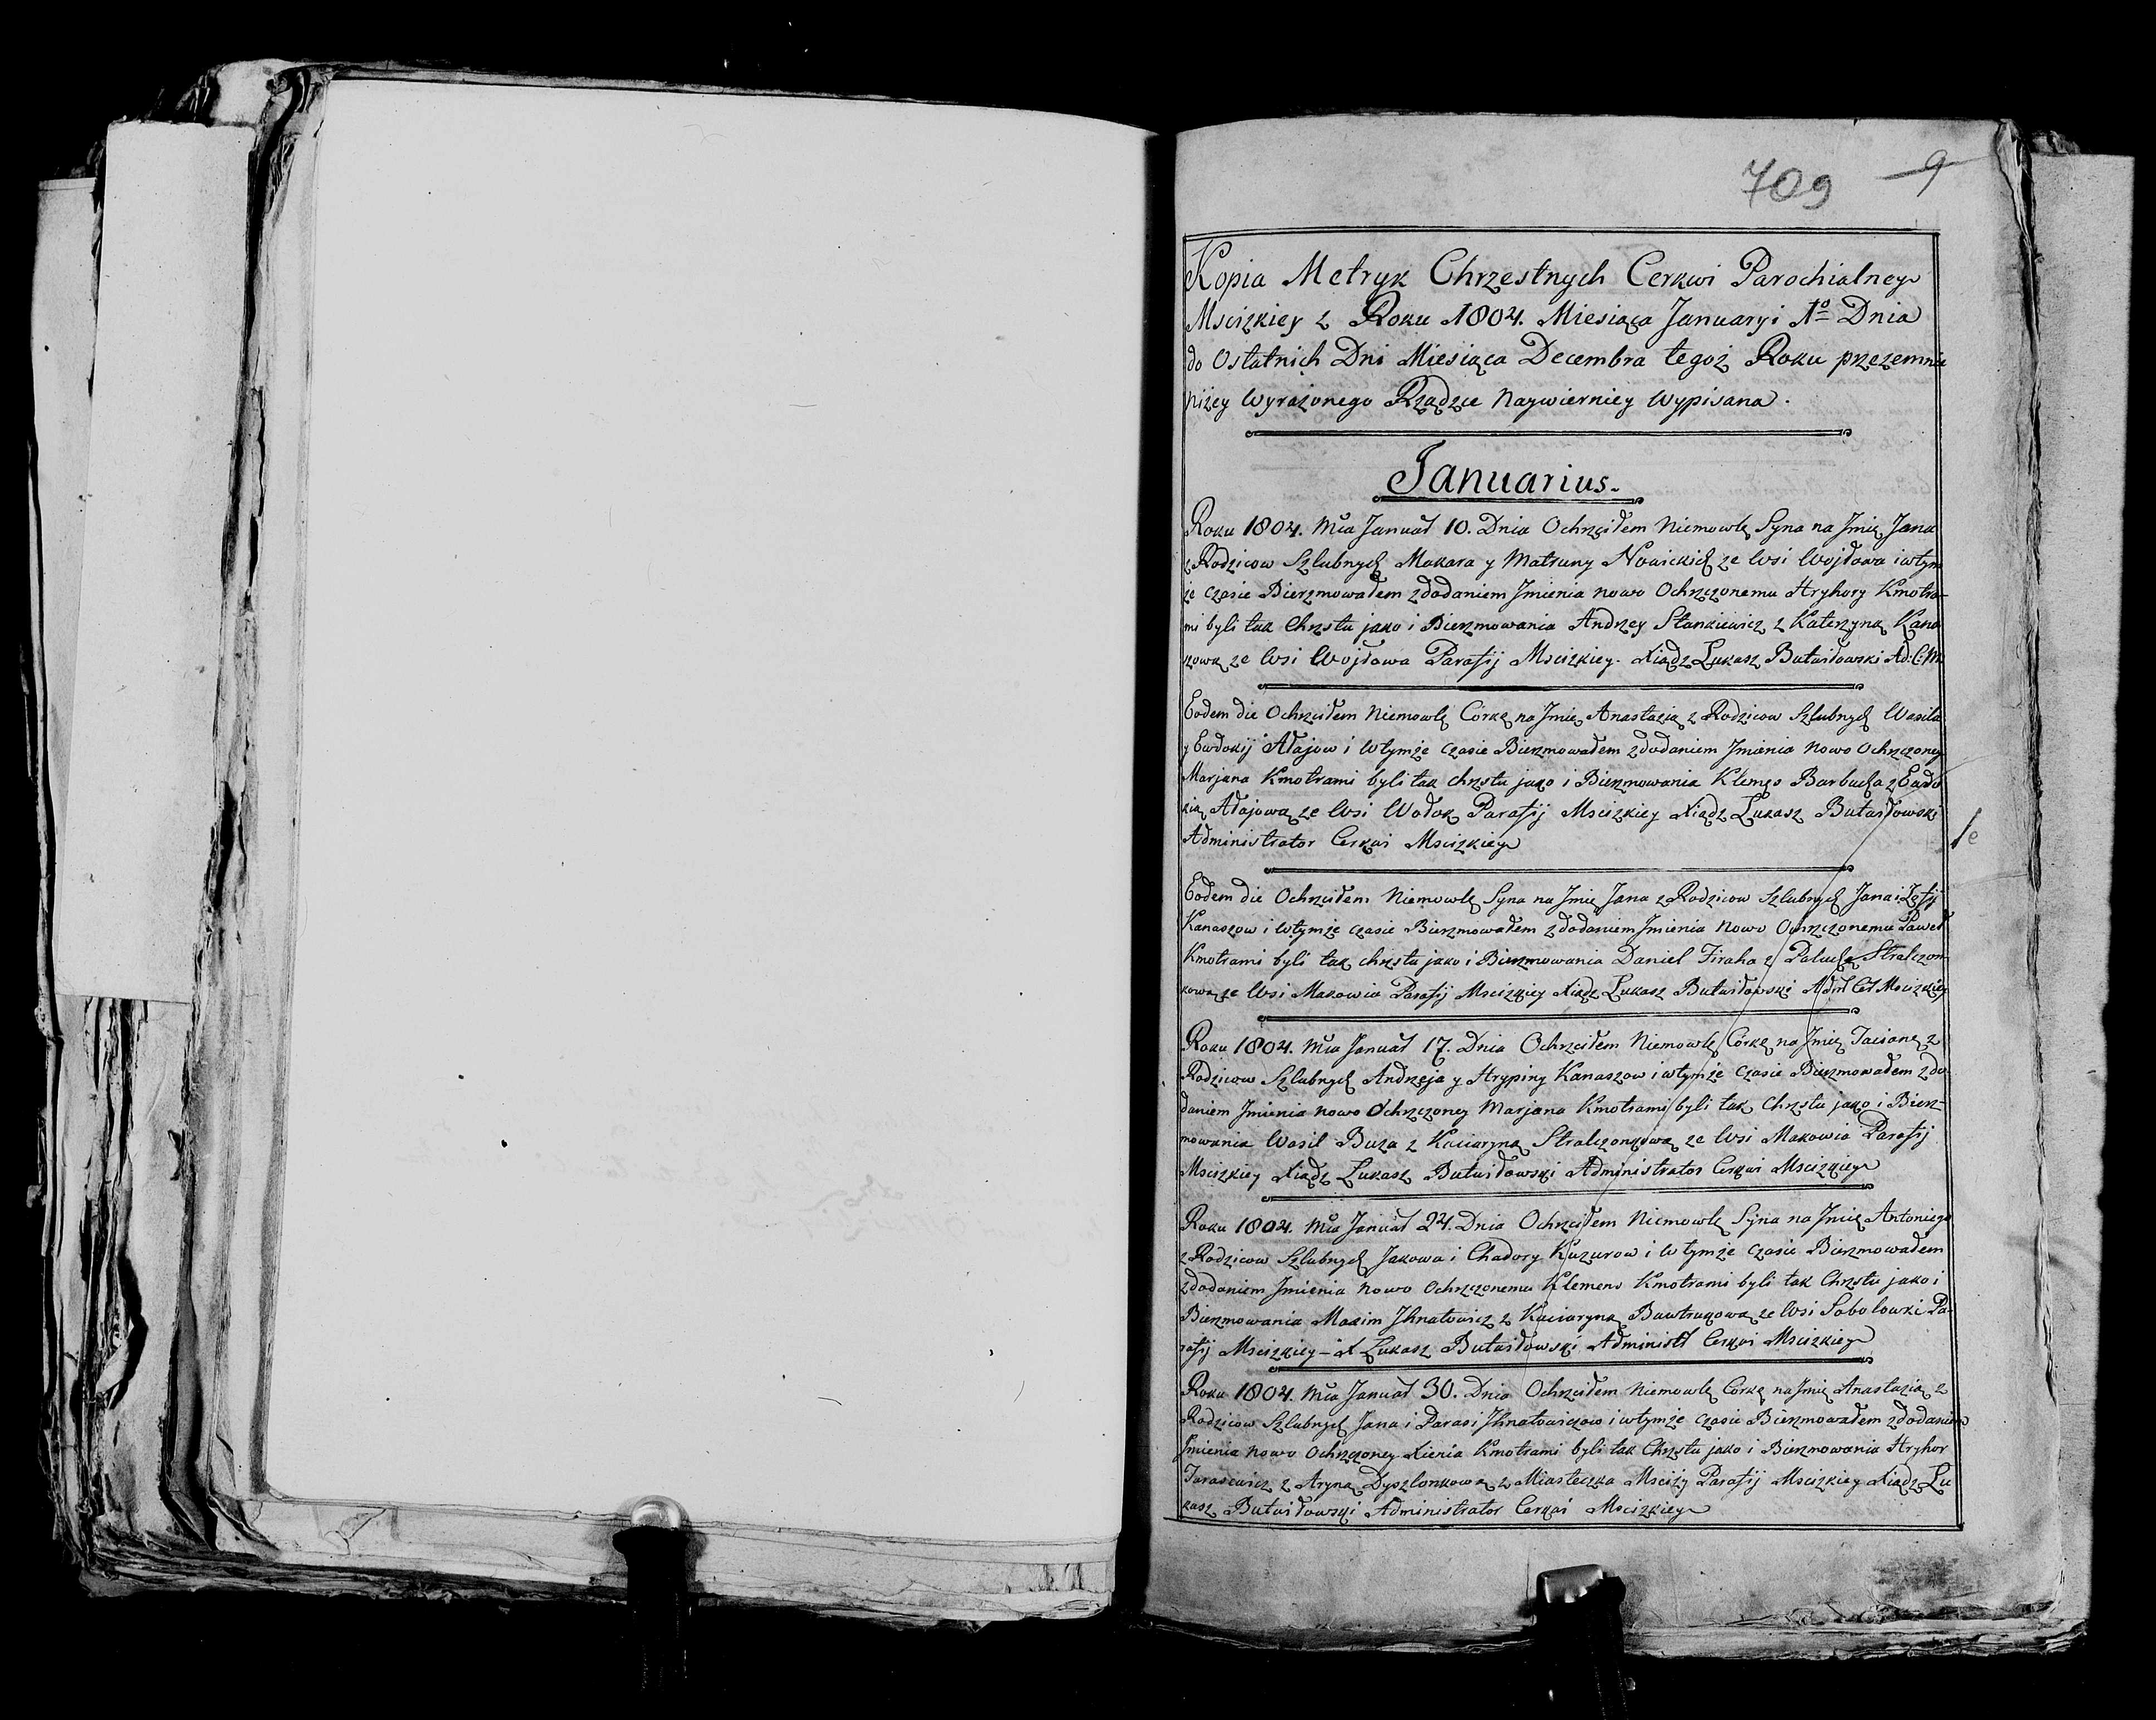 709 9
Kopia Metryk Chrzestnych Cerkwi Parochialney
Mscizkiey z Roku 1804. Miesiąca January i 1º Dnia
do Ostatnich Dni Miesiąca Decembra tegoż Roku przezemnie
niżey wyrażonego Rządzce naywierniey wypisana.
Januarius.
Roku 1804. Mca Januar 10. Dnia Ochrzciłem Niemowlę Syna na Jmię Jana
z Rodzicow Szlubnych Makara y Matruny Nowickich ze Wsi Wojłowa i wtym
że czasie Bierzmowałem z dodaniem Jmienia nowo Ochrzczonemu Hryhory Kmotra-
mi byli tak Chrztu jako i Bierzmowania Andrzey Stankiewicz z Katerzyną Kana
szową ze Wsi Wojłowa Parafij Mscizkiey. Xiądz Łukasz Butwiłowski Ad: C: M:
Eodem die Ochrzciłem Niemowlę Córkę na Jmię Anastazią z Rodzicow Szlubnych Wasila
y Ewdokij Ałajow i wtymże czasie Bierzmowałem z dodaniem Jmienia nowo Ochrzczoney
Marjana Kmotrami byli tak chrztu jako i Bierzmowania Klemęs Barbucha z Ewdo
kią Ałajową ze Wsi Wołok Parafij Mscizkiey Xiądz Łukasz Butwiłowski
Administrator Cerkwi Mscizkiey
Eodem die Ochrzciłem Niemowlę Syna na Jmię Jana z Rodzicow Szlubnych Jana i Zofij
Kanaszow i wtymże czasie Bierzmowałem z dodaniem Jmienia nowo Ochrzczonemu Paweł
Kmotrami byli tak chrztu jako i Bierzmowania Daniel Firaha z Paluchą Stralczon-
kową ze Wsi Makowia Parafij Mscizkiey Xiądz Łukasz Butwiłowski Adm Cer Mscizkiey
Roku 1804. Mca Januar 17. Dnia Ochrzciłem Niemowlę Córkę na Jmię Tacianę z
Rodzicow Szlubnych Andrzeja y Hrypiny Kanaszow i wtymże czasie Bierzmowałem z do
daniem Jmienia nowo Ochrzczoney Marjana Kmotrami byli tak Chrztu jako i Bierz-
mowania Wasil Buza z Kaciaryną Stralczonkową ze Wsi Makowia Parafij
Mscizkiey Xiądz Łukasz Butwiłowski Administrator Cerkwi Mscizkiey
Roku 1804. Mca Januar 24. Dnia Ochrzciłem Niemowlę Syna na Jmię Antoniego
z Rodzicow Szlubnych Jakowa i Chadory Kuzurow i wtymże czasie Bierzmowałem
z dodaniem Jmienia nowo Ochrzczonemu Klemens Kmotrami byli tak Chrztu jako i
Bierzmowania Maxim Jhnatowicz z Kaciaryną Bawtrukową ze Wsi Sobolowki Pa-
rafij Mscizkiey – X Łukasz Butwiłowski Administr Cerkwi Mscizkiey
Roku 1804. Mca Januar 30. Dnia Ochrzciłem Niemowlę Córkę na Jmię Anastazią z
Rodzicow Szlubnych Jana i Parasi Jhnatowiczow i wtymże czasie Bierzmowałem z dodaniem
Jmienia nowo Ochrzczoney Xienia Kmotrami byli tak Chrztu jako i Bierzmowania Hryhor
Tarasewicz z Aryną Dyszlonkową z Miasteczka Msciży Parafij Mscizkiey Xiądz Łu
kasz Butwiłowski Administrator Cerkwi Mscizkiey